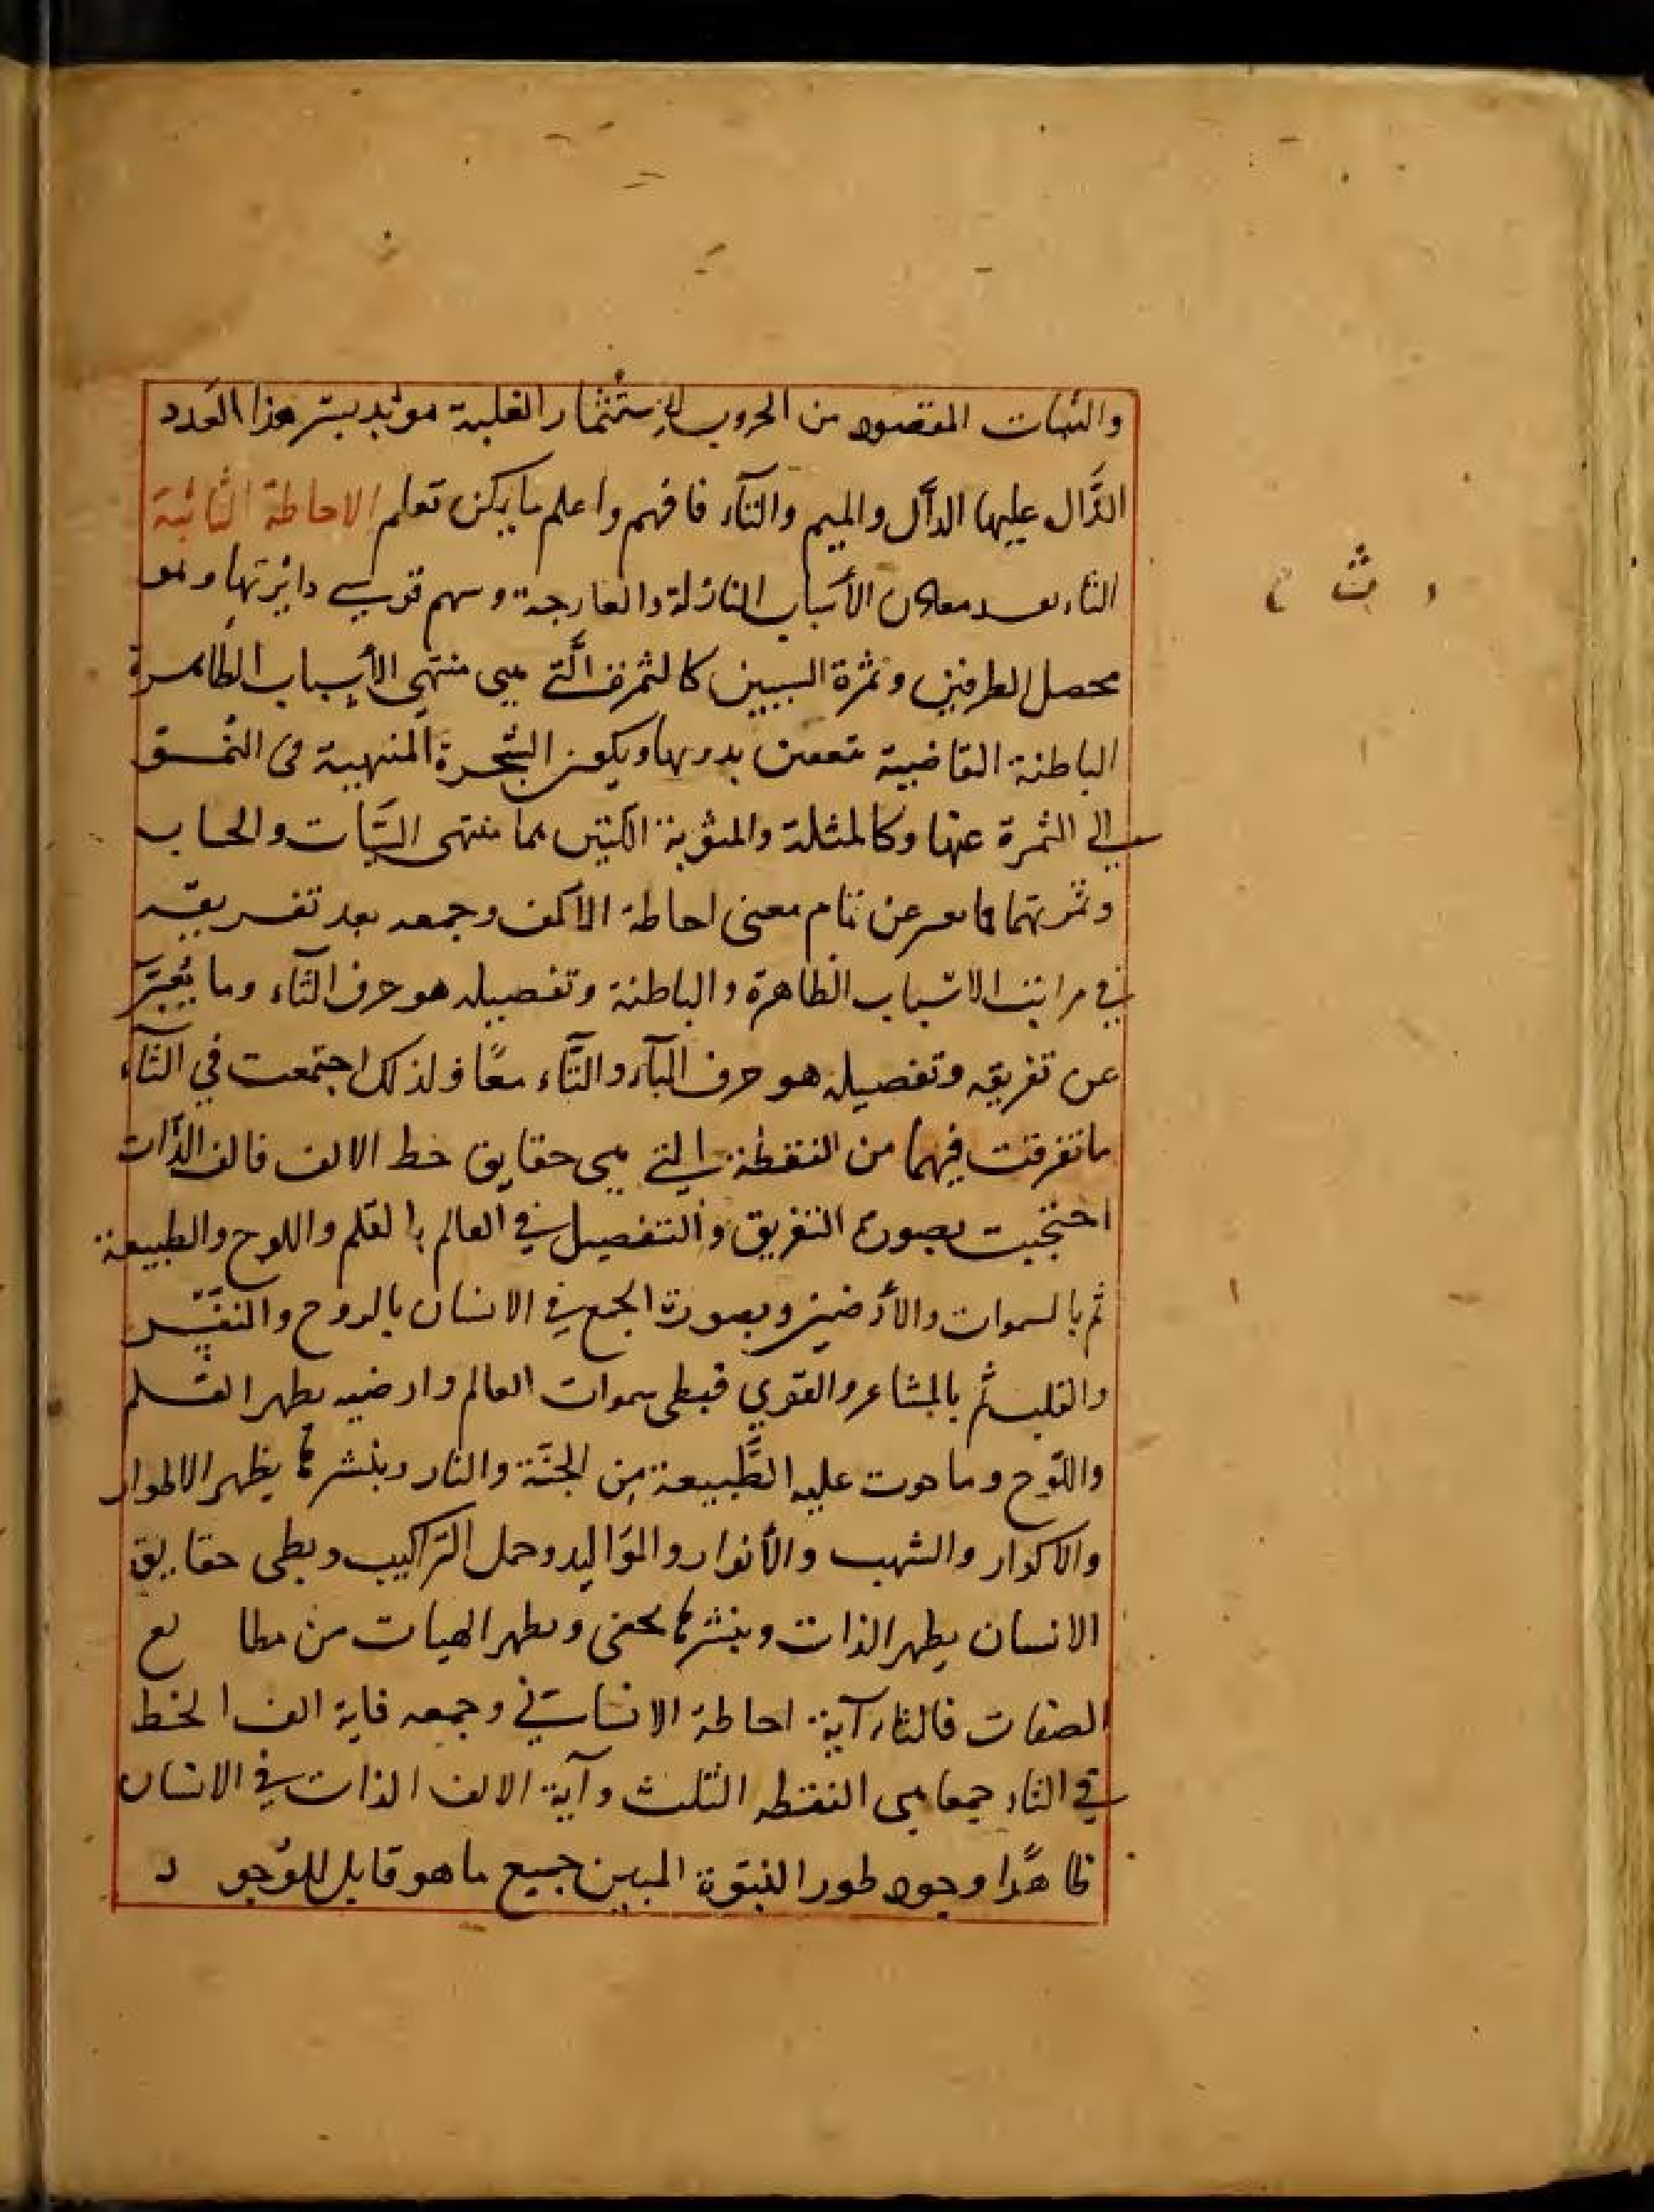 والثبات المقصود من الحروب لاستثمار الغلبة مؤيد بسر هذا العدد
الدَّال عليها الدآل والميم والتآء فافهم واعلم ما يكن تعلم الاحاطة الثائية
الثاء الأسباب النازلة والعارجة وسهم قوسي دايرتها وهو
محصل الطرفين وثمرة السببين كالثمرة الَّتي هي منتهى الأسباب الظاهرة
الباطنة القاضية بدورها ويكون الشجرة المنتهية في النسق
الى الثمرة عنها وكالمثلة والمثوبة اللتين هما منتهى السيَّات والحساب
وثمرتهما عن تمام معنى احاطة الالف وجمعه بعد تفريقه
في مراتب الاسباب الظاهرة والباطنة وتفصيله هو حرف الثآء وما يُعبَّر
عن تفريقه وتفصيله هو حرف البآء والتَّاء معًا ولذلك اجتمعت في الثآء
ما تفرقت فيهما من النقطة التي هي حقايق خط الالف فالف الذَّات
احتجبت بصورة التفريق والتفصيل في العالم بالقلم واللوح والطبيعة
ثم بالسموات والأرضين وبصورة الجمع في الانسان بالروح والنفس
والقلب ثم بالمشاعر والقوي فبطى سموات العالم وارضيه يظهر القلم
واللوح وما حوت عليه الطَّبيعة من الجنَّة والنار وبنشرها يظهر الاطوار
والاكوار والشهب والأنوار والمَواليد وحمل التراكيب وبطى حقايق
الانسان يظهر الذات وبنشرها يخفى ويظهر الهيات من مطالع
الصفات فالثاء آية احاطة الانسان وجمعه فاية الف الخط
في الثاء جمعا هي النقطه الثلث وآية الالف الذات في الانسان
ظاهرًا وجود طور النبوّة المبين جميع ما هو قابل للوُجود
ث